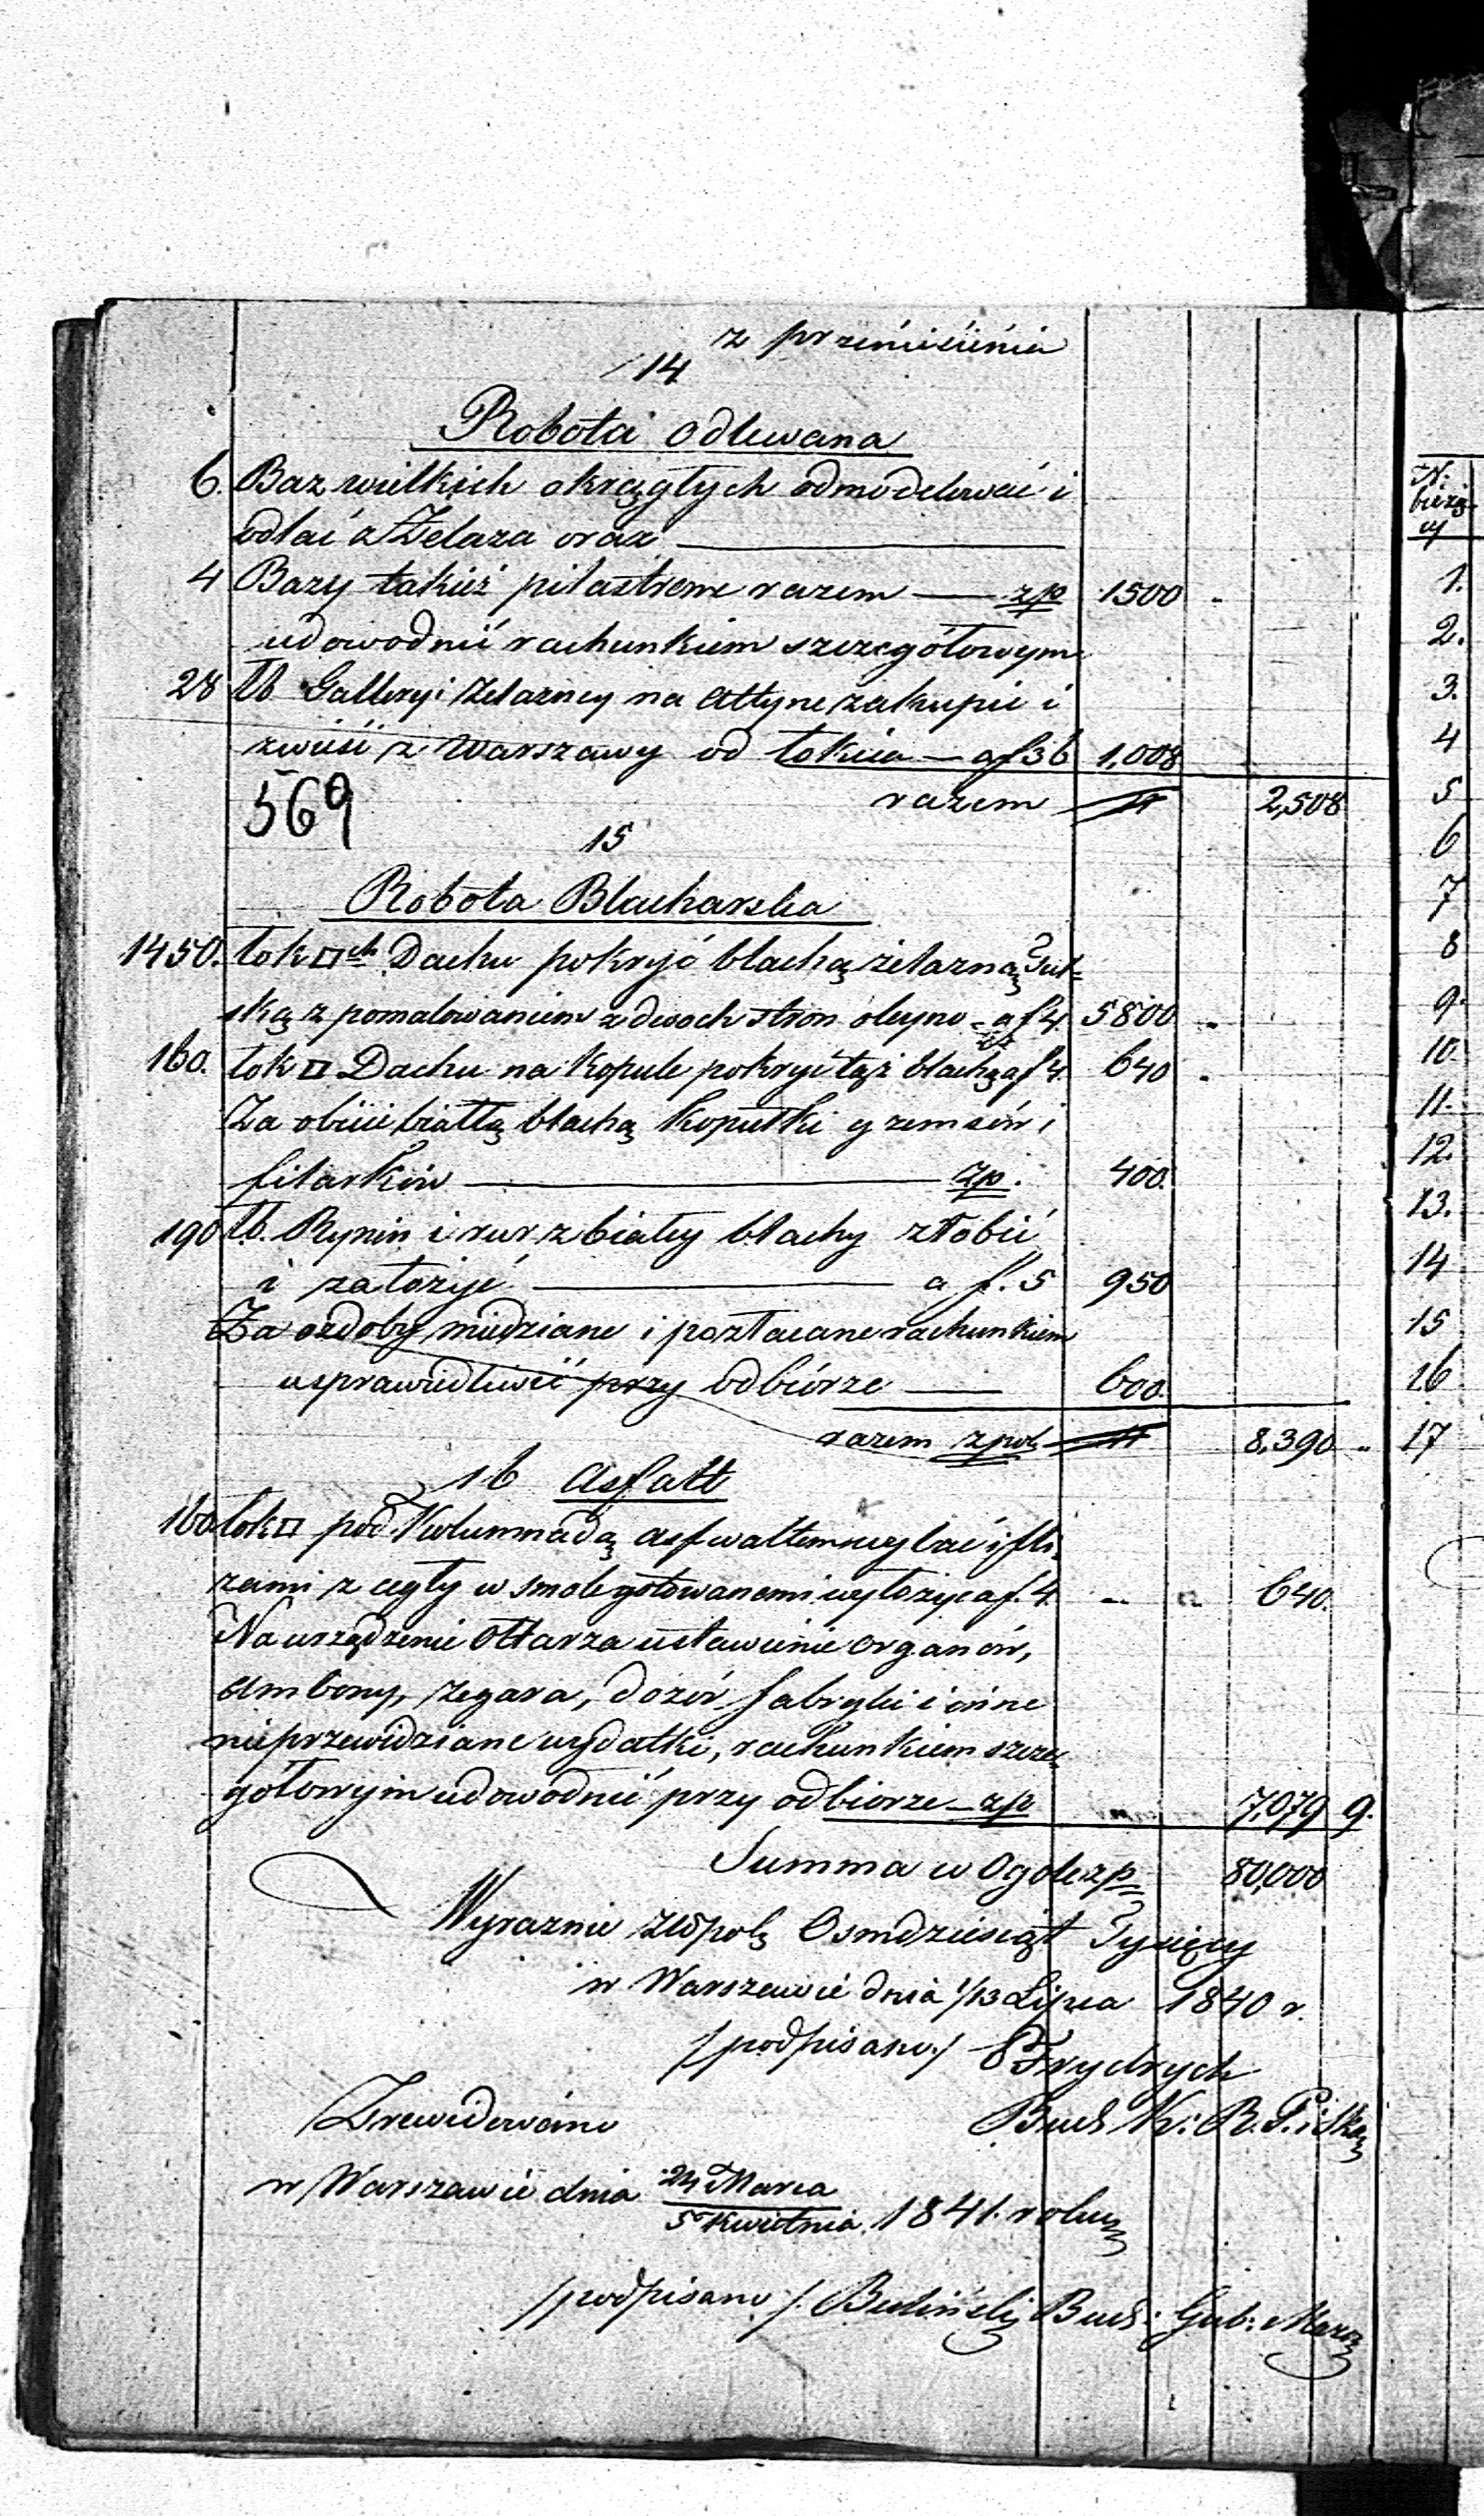 z przeniesienia
14
Robota odlewana
6. Baz wielkich okrągłych odmodelować i
odlać z Żelaza oraz
4 Bazy takież pilastrowe razem — zp 1500 "
udowodnić rachunkiem szczegółowym
28 łb Galleryi żelazney na Attyne zakupić i
zwieść z Warszawy od łokcia — a f 36 1,008
razem 2,508
569
15
Robota Blacharska
1450. łok □ch Dachu pokryć blachą żelazną
ską z pomalowaniem z dwoch stron oleyno a f 4. 5800 "
160. łok □ Dachu na Kopule pokryć tąż blachą a f 4. 640 "
Za obicie białą blachą Kopułki gzemsów i
filarków — zp. 400.
190 łb. Rynien i rur z białey blachy złobić
i założyć — a f. 5 950
Za ozdoby miedziane i pozłacane rachunkiem
usprawiedliwić przy odbiorze — 600.
razem zpol 8,390 "
16 Asfalt
160 łok □ pod Kolumnadą asfwaltem wylać i fli-
zami z cegły w smole gotowanemi wyłożyć a f. 4. " " 640.
Na urządzenie Ołtarza ustawienie organów,
Ambony, zegara, dozór fabryki i inne
nieprzewidziane wydatki, rachunkiem szcze-
gółowym udowodnić przy odbiorze — zp 7,079 9.
Summa w Ogole zp 80,000
Wyraznie złłpolę Osmdziesiąt Tysięcy
w Warszawie dnia 1/13 Lipca 1840 r.
/podpisano/ Frydrych
Bud: K: R. P. i Ska
Zrewidowano
w Warszawie dnia 24 Marca
5 Kwietnia 1841. roku
/podpisano/. Bud: Gub: Mazo
N:
bieżą
cy
1.
2.
3.
4
5
6
7
8
9.
10.
11.
12.
13.
14
15
16
17